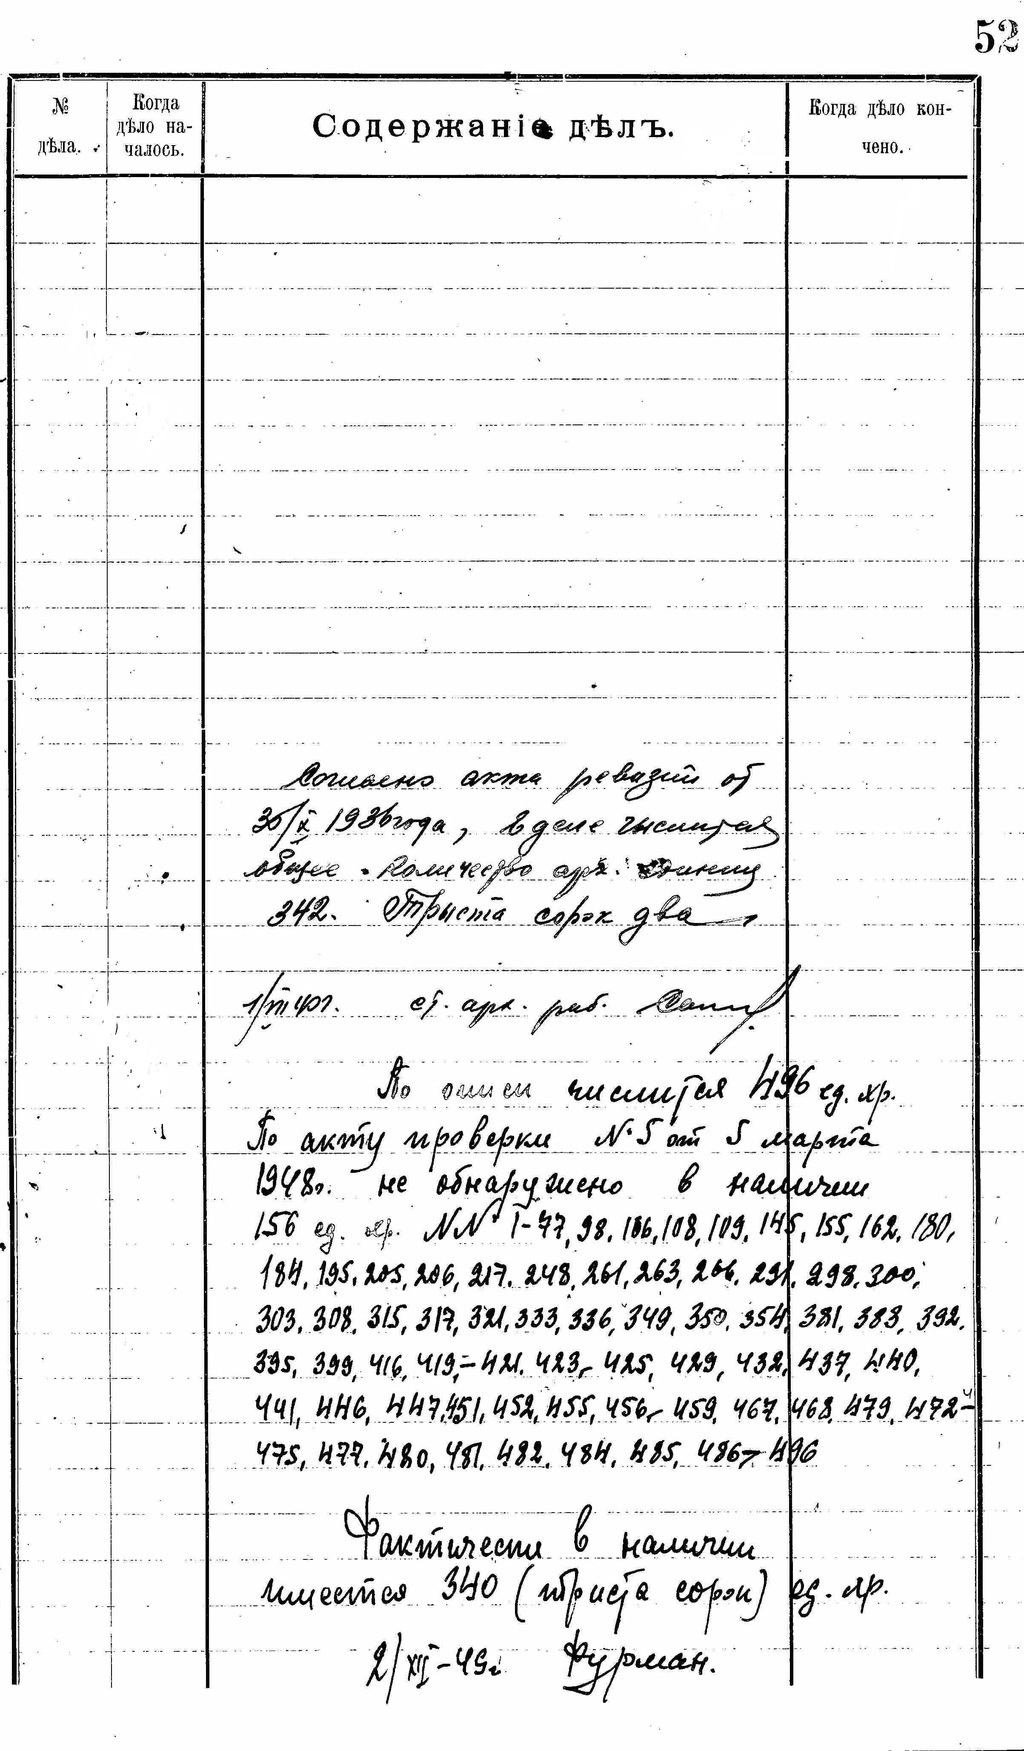 52
№ дѣла.
Когда дѣло началось.
Содержаніе дѣлъ.
Когда дѣло кончено.
Согласно акта ревизии от
30/X 1936 года, в деле числится
общее количество арх. единиц
342. Триста сорок два
1/III 40г. ст. арх. раб.
По описи числится 496 ед. хр.
По акту проверки №5 от 5 марта
1948г. не обнаружено в наличии
156 ед. хр. NN I-77, 98, 106, 108, 109, 145, 155, 162, 180,
184, 195, 205, 206, 217, 248, 261, 263, 266, 291, 298, 300,
303, 308, 315, 317, 321, 333, 336, 349, 350, 354, 381, 383, 392,
395, 399, 416, 419,-421, 423,-425, 429, 432, 437, 440,
441, 446, 447, 451, 452, 455, 456,-459, 467, 468, 479, 472-
475, 477, 480, 481, 482, 484, 485, 486,-496
Фактически в наличии
имеется 340 (триста сорок) ед. хр.
2/XII-49г. Фурман.